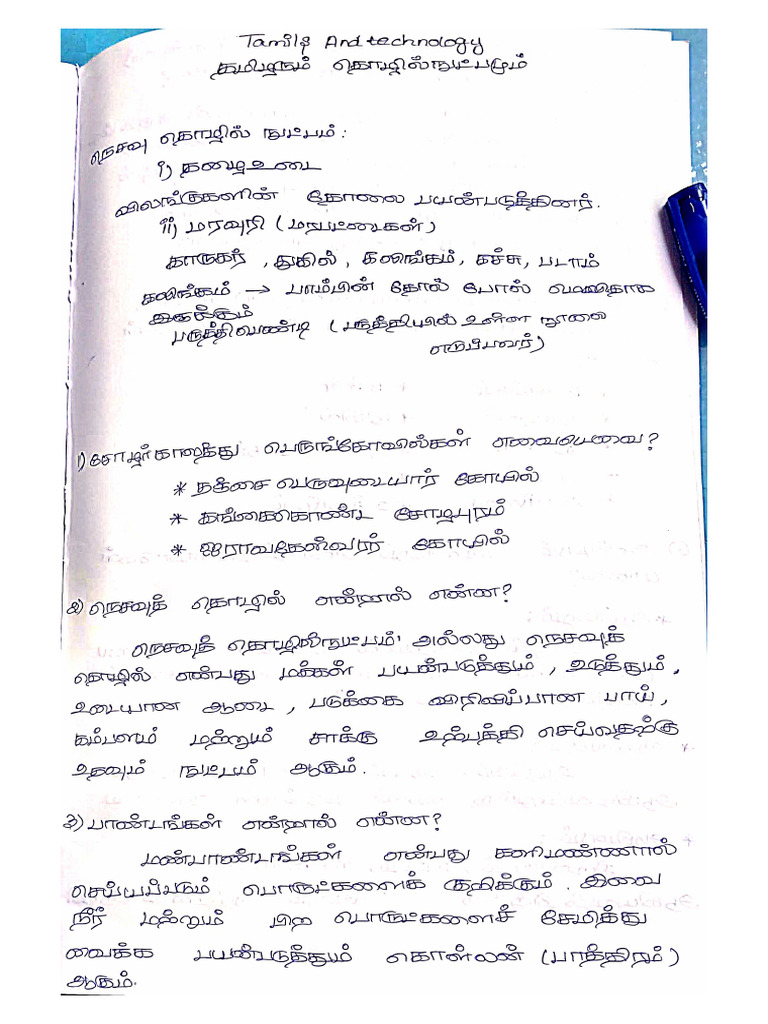 Tamils And technology
தமிழரும் தொழில்நுட்பமும்
நெசவு தொழில் நுட்பம் :
i) தழை உடை
விலங்குகளின் தோலை பயன்படுத்தினர்.
ii) மரவுரி (மரபட்டைகள்)
காருகர் , துகில் , கலிங்கம், கச்சு, படாம்
கலிங்கம் → பாம்பின் தோல் போல்
இருக்கும்
பருத்திவண்டி (பருத்தியில் உள்ள நூலை
எடுப்பவர்)
1) சோழர்காலத்து பெருங்கோவில்கள் எவையெவை?
* தஞ்சை பெருவுடையார் கோயில்
* கங்கைகொண்ட சோழபுரம்
* ஐராவதேஸ்வரர் கோயில்
2) நெசவுத் தொழில் என்றால் என்ன?
நெசவுத் தொழில்நுட்பம்' அல்லது நெசவுத்
தொழில் என்பது மக்கள் பயன்படுத்தும் , உடுத்தும் ,
உடையான ஆடை , படுக்கை விரிவிப்பான பாய் ,
கம்பளம் மற்றும் சாக்கு உற்பத்தி செய்வதற்கு
உதவும் நுட்பம் ஆகும் .
3) பாண்டங்கள் என்றால் என்ன?
மண்பாண்டங்கள் என்பது களிமண்ணால்
செய்யப்படும் பொருட்களைக் குறிக்கும் . இவை
நீர் மற்றும் பிற பொருட்களைச் சேமித்து
வைக்க பயன்படுத்தும் கொள்லன் (பாத்திரம்)
ஆகும்.